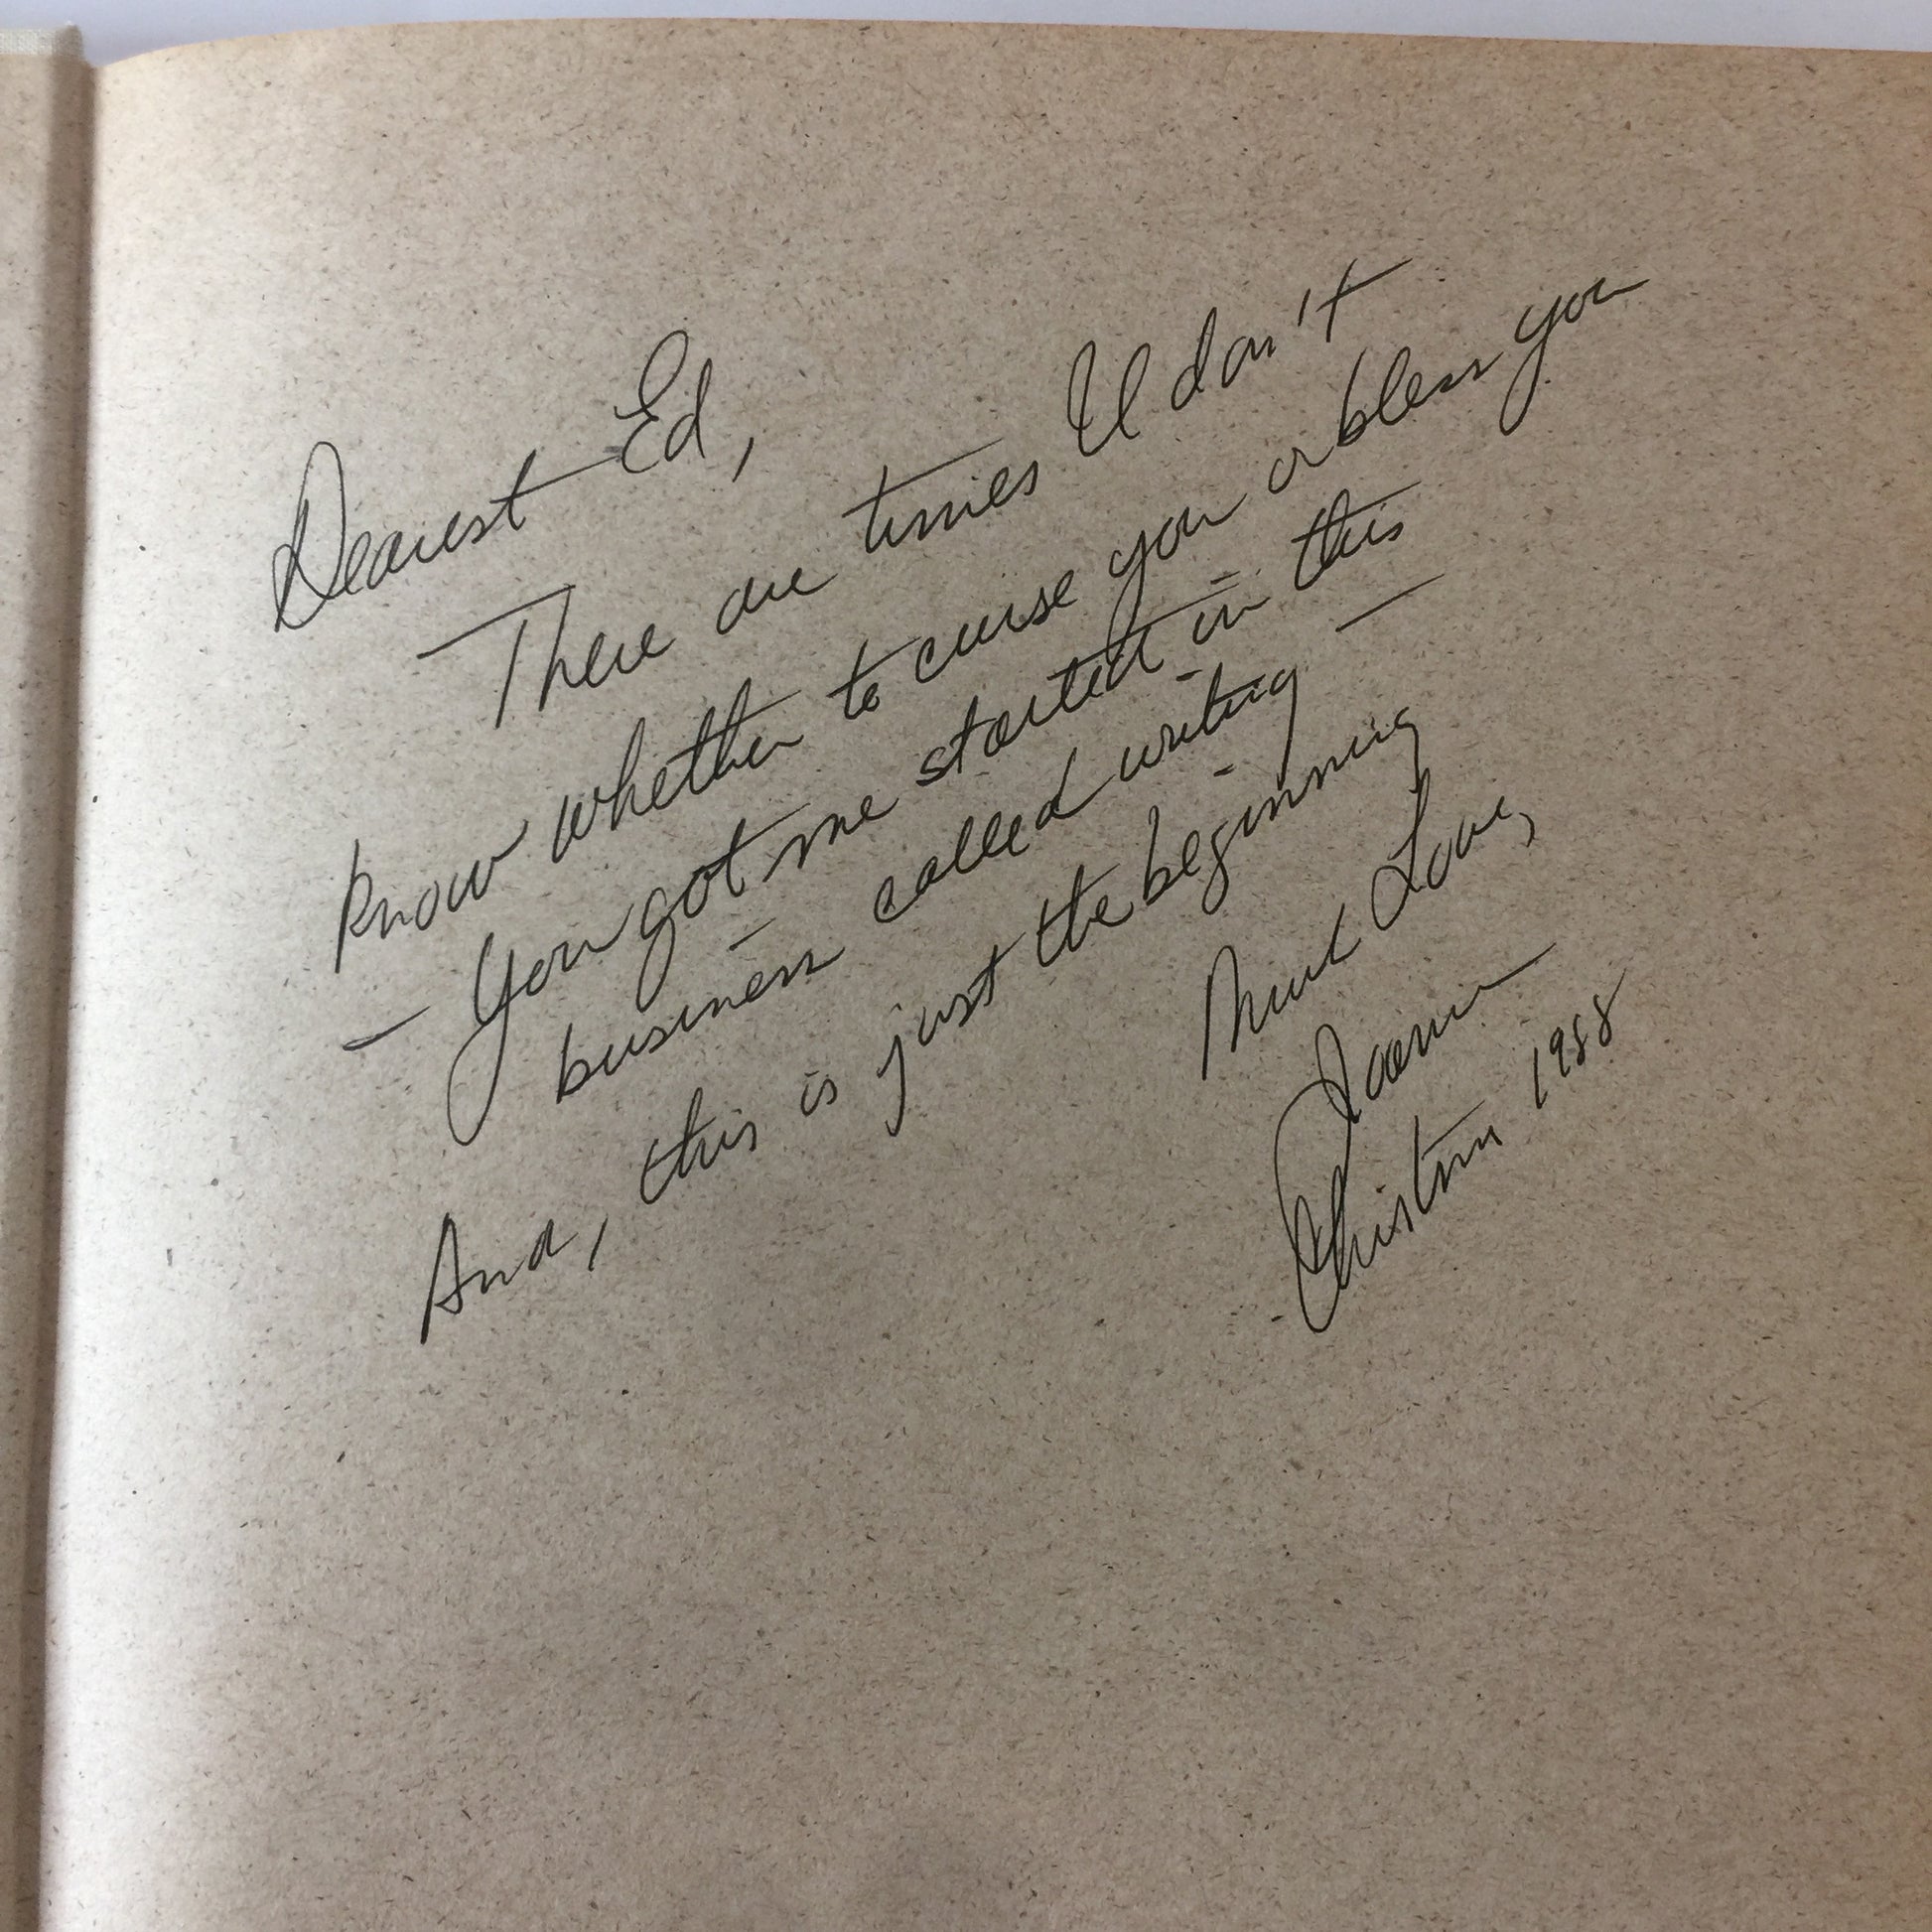 Dearest Ed,
There are times I don't
know whether to curse you or bless you
— You got me started in this
business called writing —
And, this is just the beginning
Much Love,
Christmas 1988